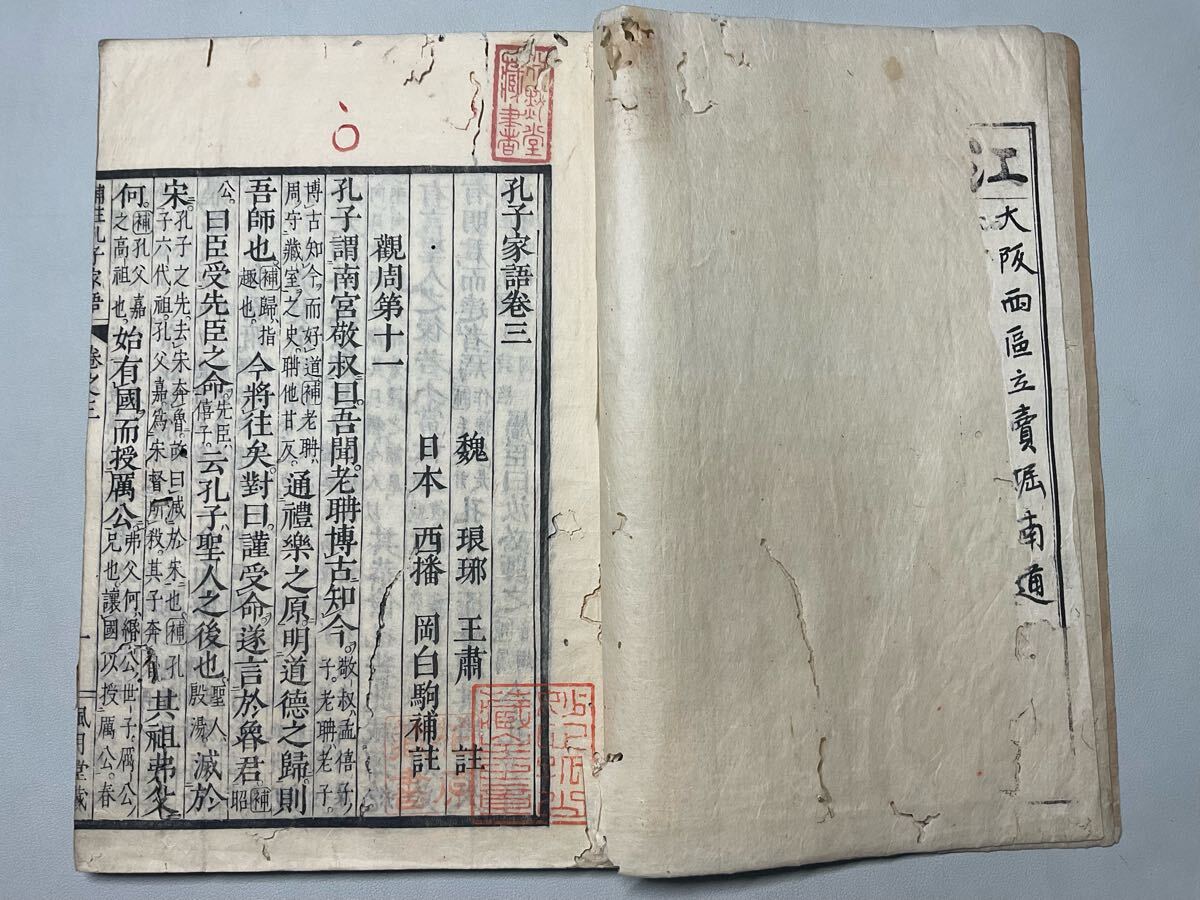 江
大阪西區立賣堀南通
藏書
孔子家語卷三
魏 琅琊 王肅 註
日本 西播 岡白駒 補註
觀周第十一
孔子謂南宮敬叔曰。吾聞。老聃博古知今。敬叔、孟僖子子。老聃、老子。
博古知今、而好道。補老聃、周守藏室之史。聃他甘反。通禮樂之原。明道德之歸。則
吾師也。補歸、指趣也。今將往矣。對曰。謹受命。遂言於魯君。補昭公。
曰。臣受先臣之命。先臣、僖子。云。孔子、聖人之後也。聖人、殷湯。滅於
宋。孔子之先、去宋奔魯。故曰滅於宋也。補孔子六代祖。孔父嘉為宋督所殺。其子奔魯。其祖弗父
何。補孔父嘉之高祖也。始有國。而授厲公。弗父何、緡公世子、厲公兄也。讓國以授厲公。春
補註孔子家語 卷之三 一 風月堂藏